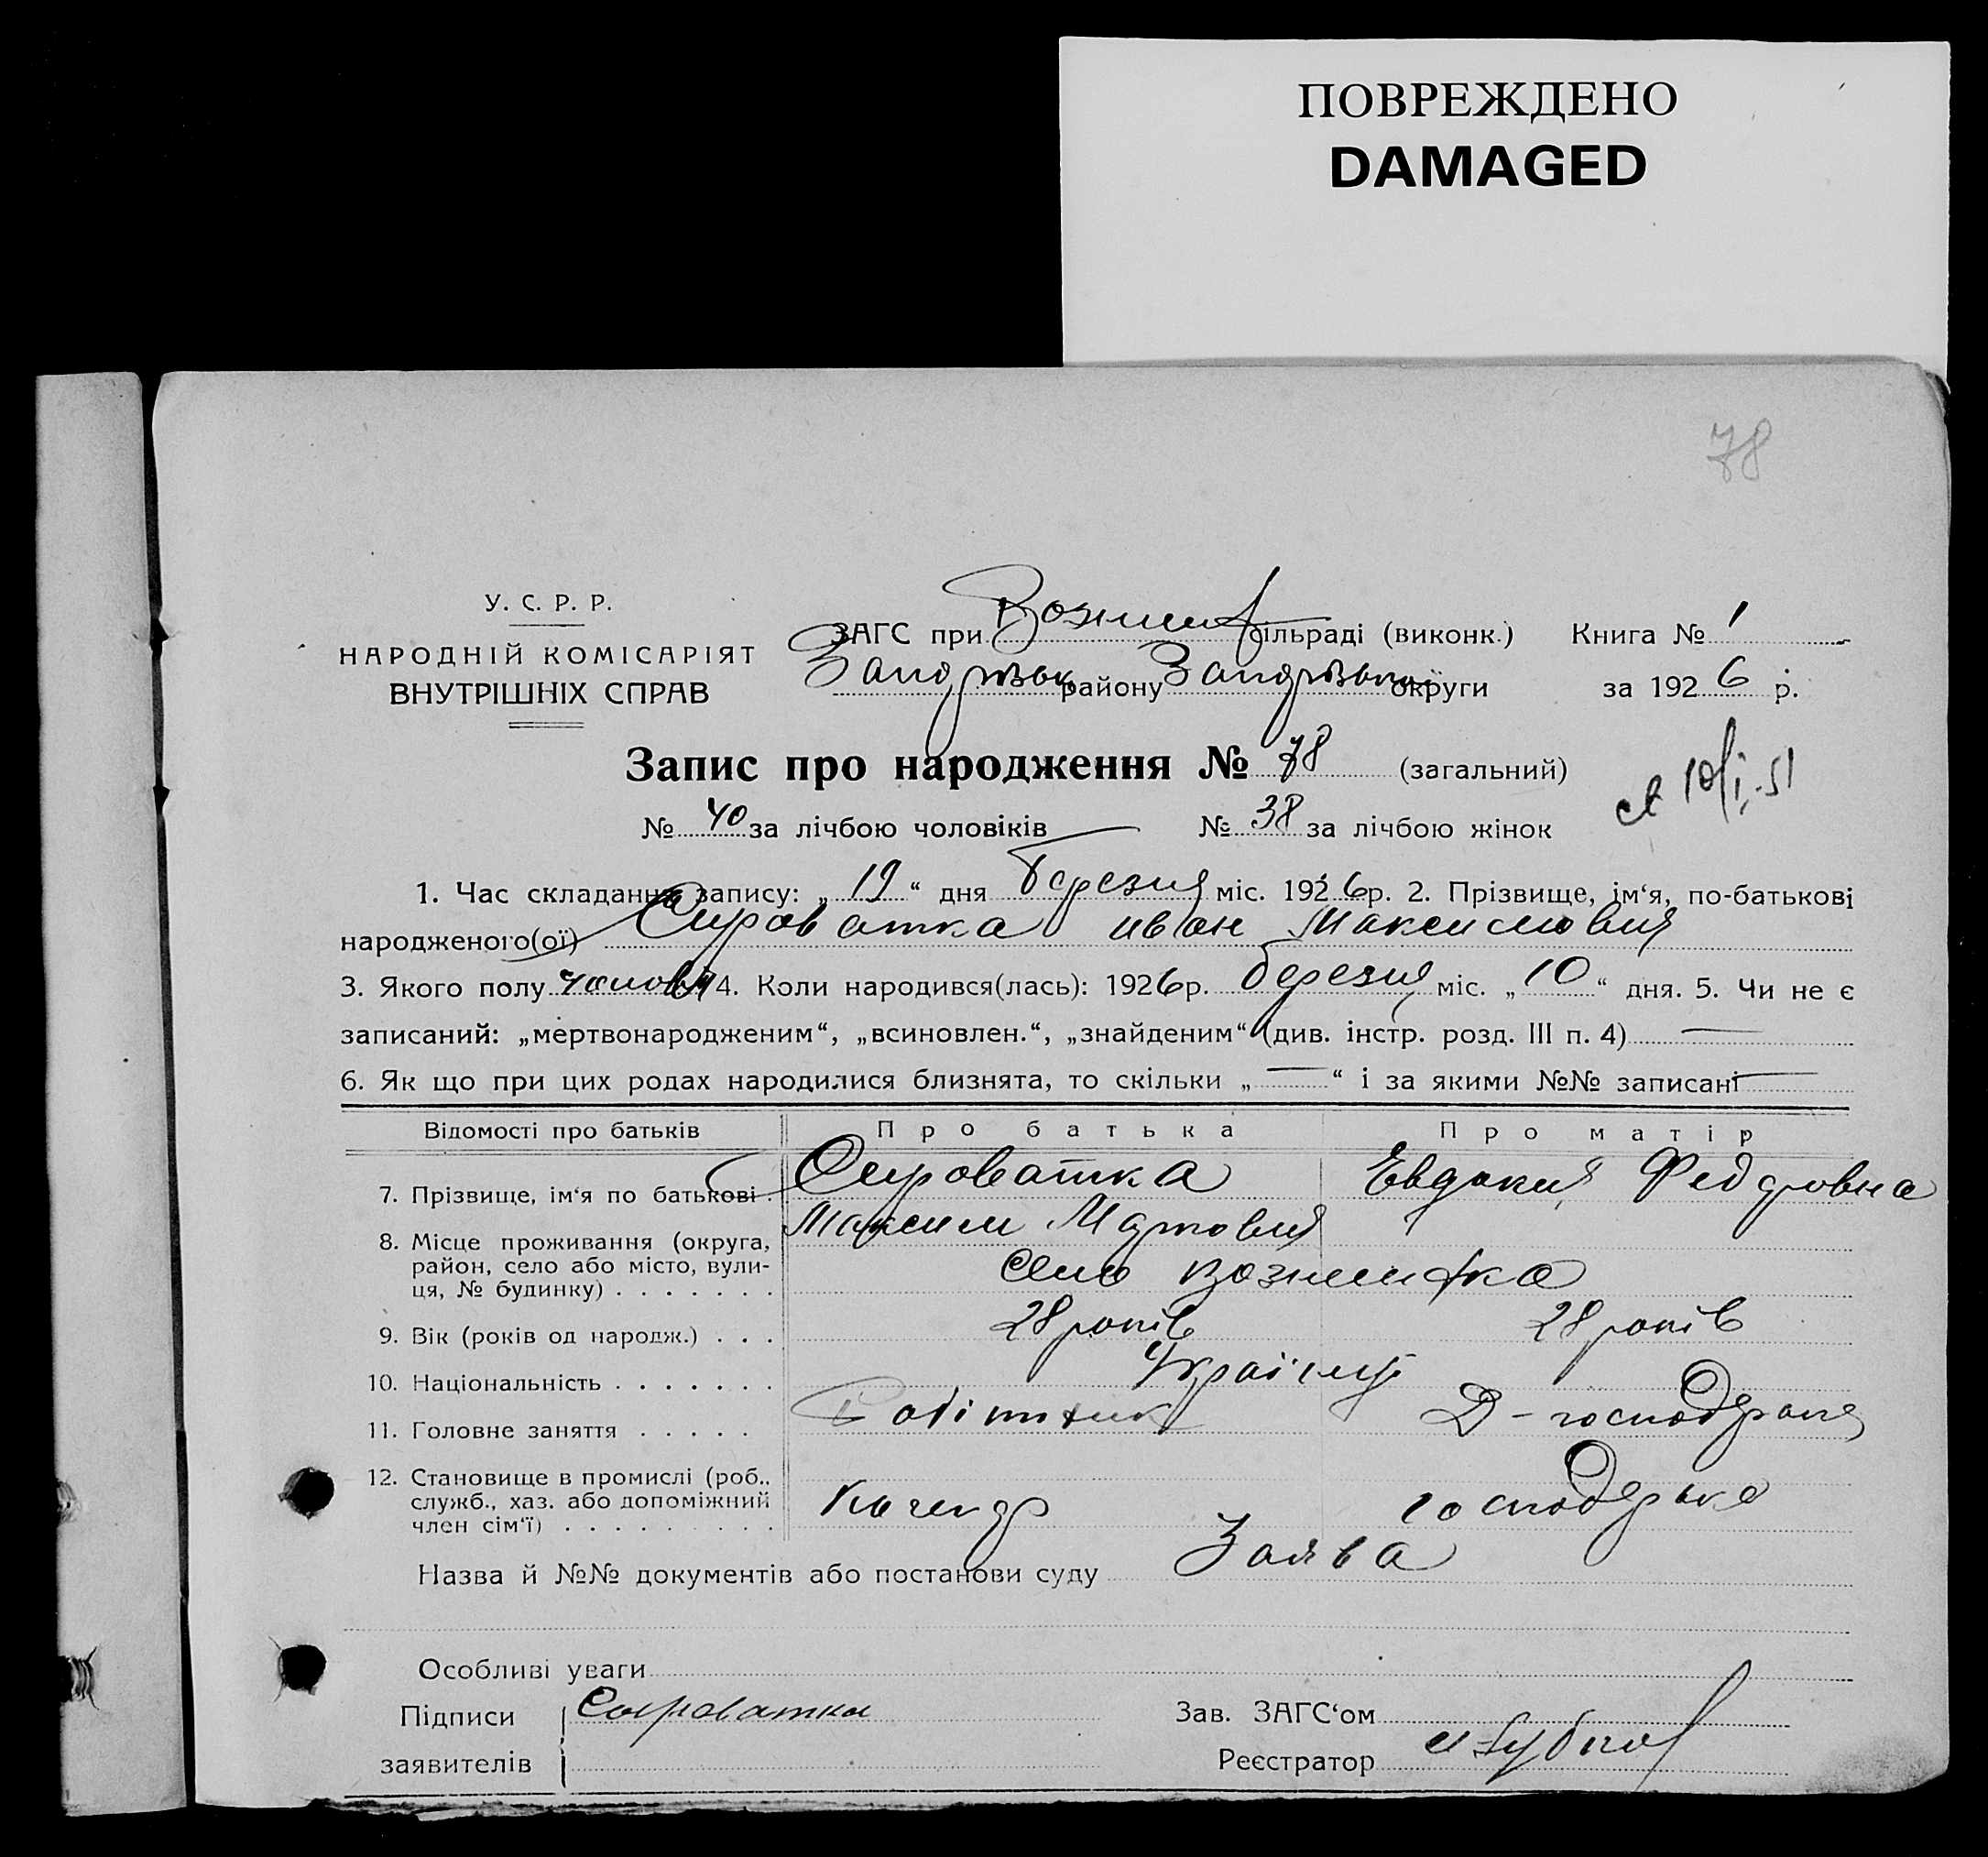 ПОВРЕЖДЕНО
DAMAGED
78
У. С. Р. Р.
НАРОДНІЙ КОМІСАРІЯТ
ВНУТРІШНІХ СПРАВ
ЗАГС при сільраді (виконк.) Книга № 1
району округи за 1926 р.
Запис про народження № 78 (загальний)
10/I-51
№ 40 за лічбою чоловіків № 38 за лічбою жінок
1. Час складання запису: „19“ дня березня міс. 1926 р. 2. Прізвище, ім‘я, по-батькові
народженого(ої) Сироватка иван Максимович
3. Якого полу 4. Коли народився(лась): 1926 р. березня міс. „10“ дня. 5. Чи не є
записаний: „мертвонародженим“, „всиновлен.“, „знайденим“ (див. інстр. розд. III п. 4) —
6. Як що при цих родах народилися близнята, то скільки „—“ і за якими №№ записані —
Відомості про батьків Про батька Про матір
7. Прізвище, ім‘я по батькові . Сироватка Евдокия Федоровна
Максим
8. Місце проживання (округа,
район, село або місто, вули-
ця, № будинку) . . . . . . . село
9. Вік (років од народж.) . . . 28 років 28 років
10. Національність . . . . . . . Українці
11. Головне заняття . . . . . Робітник Д-господарка
12. Становище в промислі (роб.,
служб., хаз. або допоміжний
член сім‘ї) . . . . . . . . . Кочегар господарка
Назва й №№ документів або постанови суду Заява
Особливі уваги
Підписи Сыроватка Зав. ЗАГС‘ом
заявителів Реєстратор